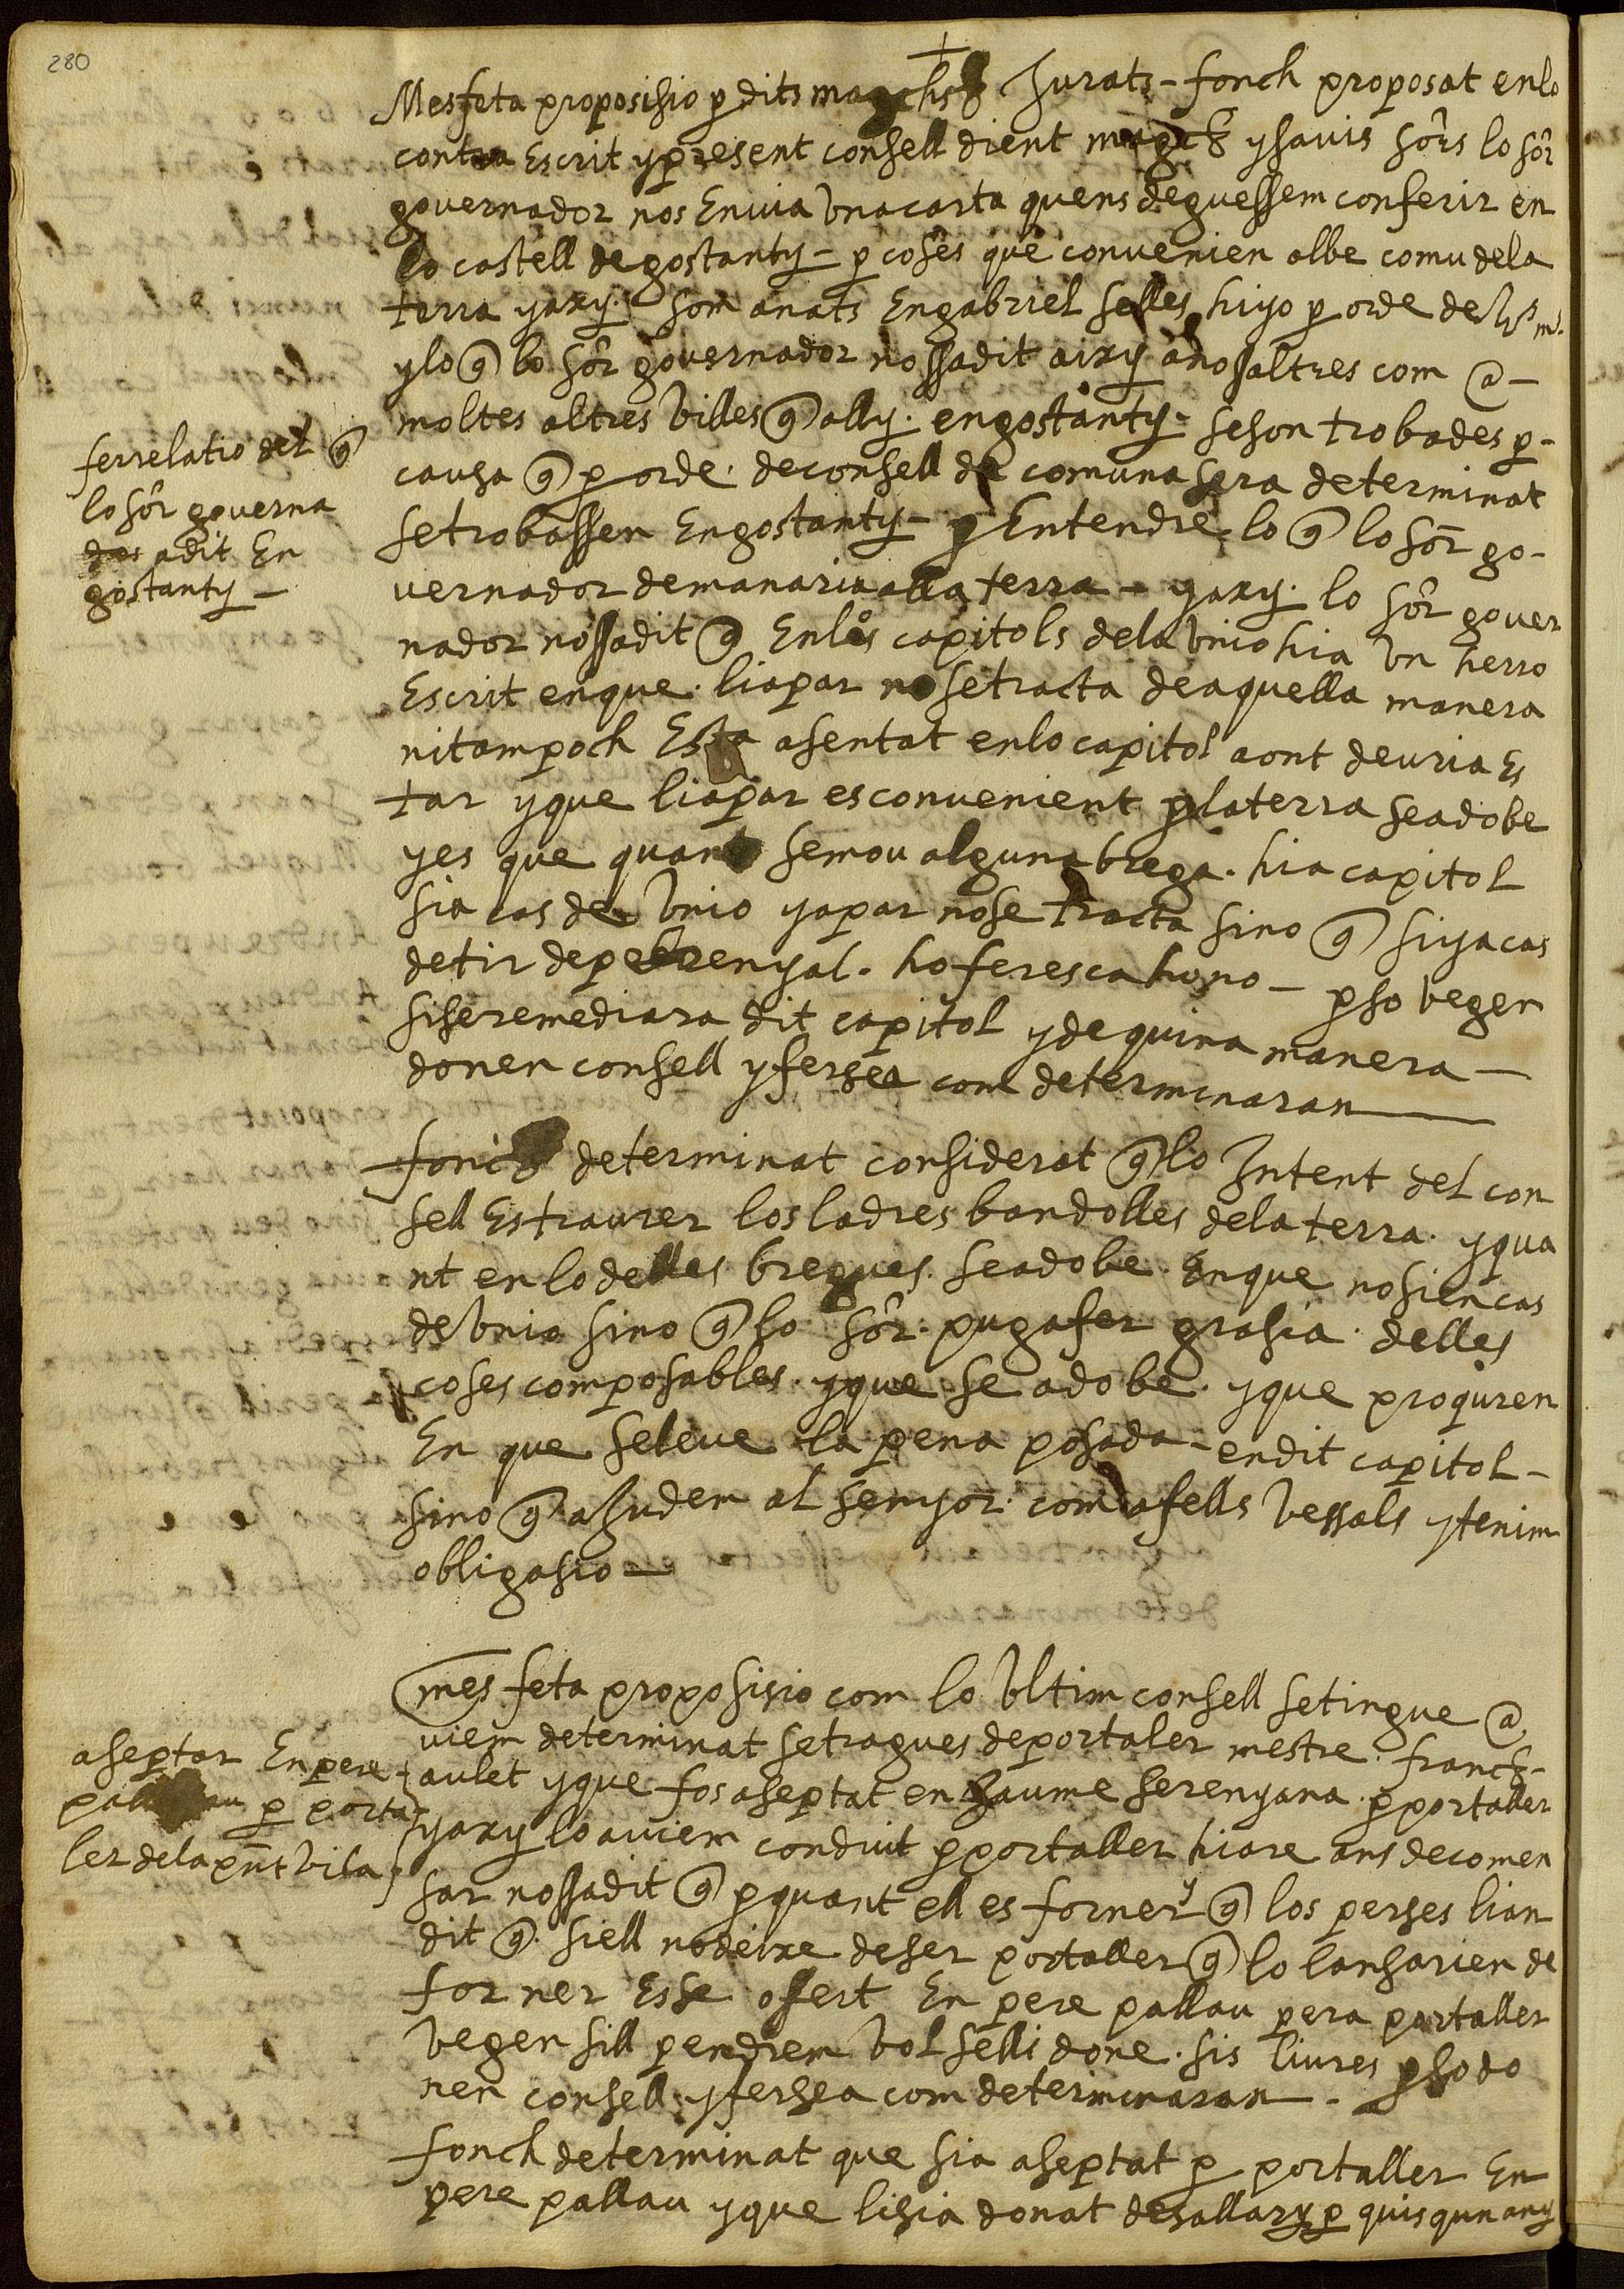 280
+
Mes feta proposisio p dits magchs Jurats - fonch proposat en lo
contra Escrit y present consell dient magchs y savis sôrs lo sôr
governador nos Envia vna carta quens deguessem conferir en
lo castell de gostanty - p coses que convenien al be comu de la
terra y axy. som anats En gabriel selles hi yo p orde de
y lo q lo sôr governador nossa dit aixy a nosaltres com @ -
moltes altres villes q ally. en gostanty - se son trobades p -
causa q p orde de consell de comuna sera determinat
se trobassen En gostanty - p Entendre lo q lo sôr go-
vernador demanaria a lla terra - y axy. lo sôr gover
nador nossa dit q En los capitols de la vnio hia vn herro
Escrit en que. li apar no se tracta de aquella manera
ni tampoch Esta asentat en lo capitol aont deuria Es
tar y que li apar es convenient p la terra se adobe
y es que quant se mou alguna brega. hia capitol
sia cas de vnio y apar no se tracta sino q si ya cas
de tir de pedrenyal. ho feresca hu no - p so vegen
si se remediara dit capitol y de quina manera -
donen consell y fer sea com determinaran
ferrelatio del q
lo sôr governa
dor a dit En
gostanty -
fonch determinat considerat q lo Intent del con
sell Es traurer los ladres bandolles de la terra. y qua
nt en lo de lles bregues. se adobe. En que no sien cas
de vnio sino q lo sôr. puga fer grasia. de lles
coses composables. y que se adobe. y que proquren
En que se leve la pena posada - en dit capitol -
sino q aJudem al senyor. com a sells vessals y tenim
obligasio -
mes feta proposisio com lo vltim consell se tingue @
viem determinat se tragues de portaler mestre. franch -
aulet y que fos aseptat en Jaume serenyana. p portaller
y axy lo aviem conduit p portaller hi are ans de comen
sar nossa dit q p quant ell es forner y q los perses li an
dit q. si ell no deixe de ser portaller q lo lansarien de
forner Es se offert En pere pallau pera portaller
vegen sill pendrem vol selli done. sis liures p so do
nen consell y fer sea com determinaran -
aseptar En pere
pallau p porta
ler de la pñt vila
fonch determinat que sia aseptat p portaller En
pere pallau y que li sia donat de sallary p quisqun any